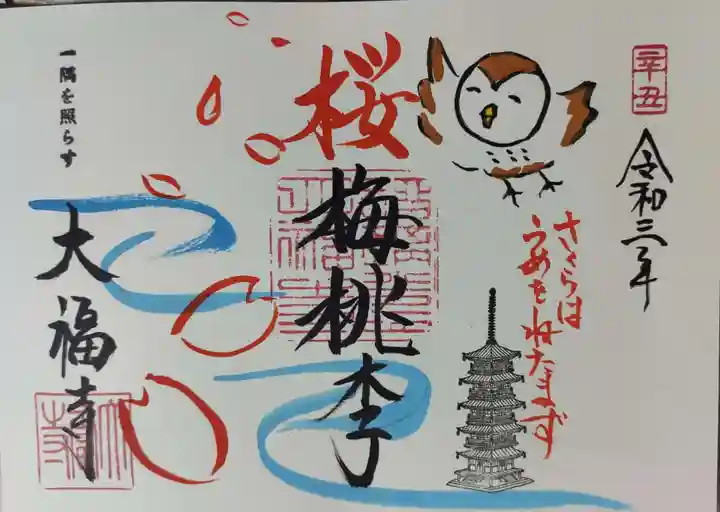 辛丑
令和三年
さくらは
うめをねたまず
桜梅桃李
一隅を照らす
大福寺